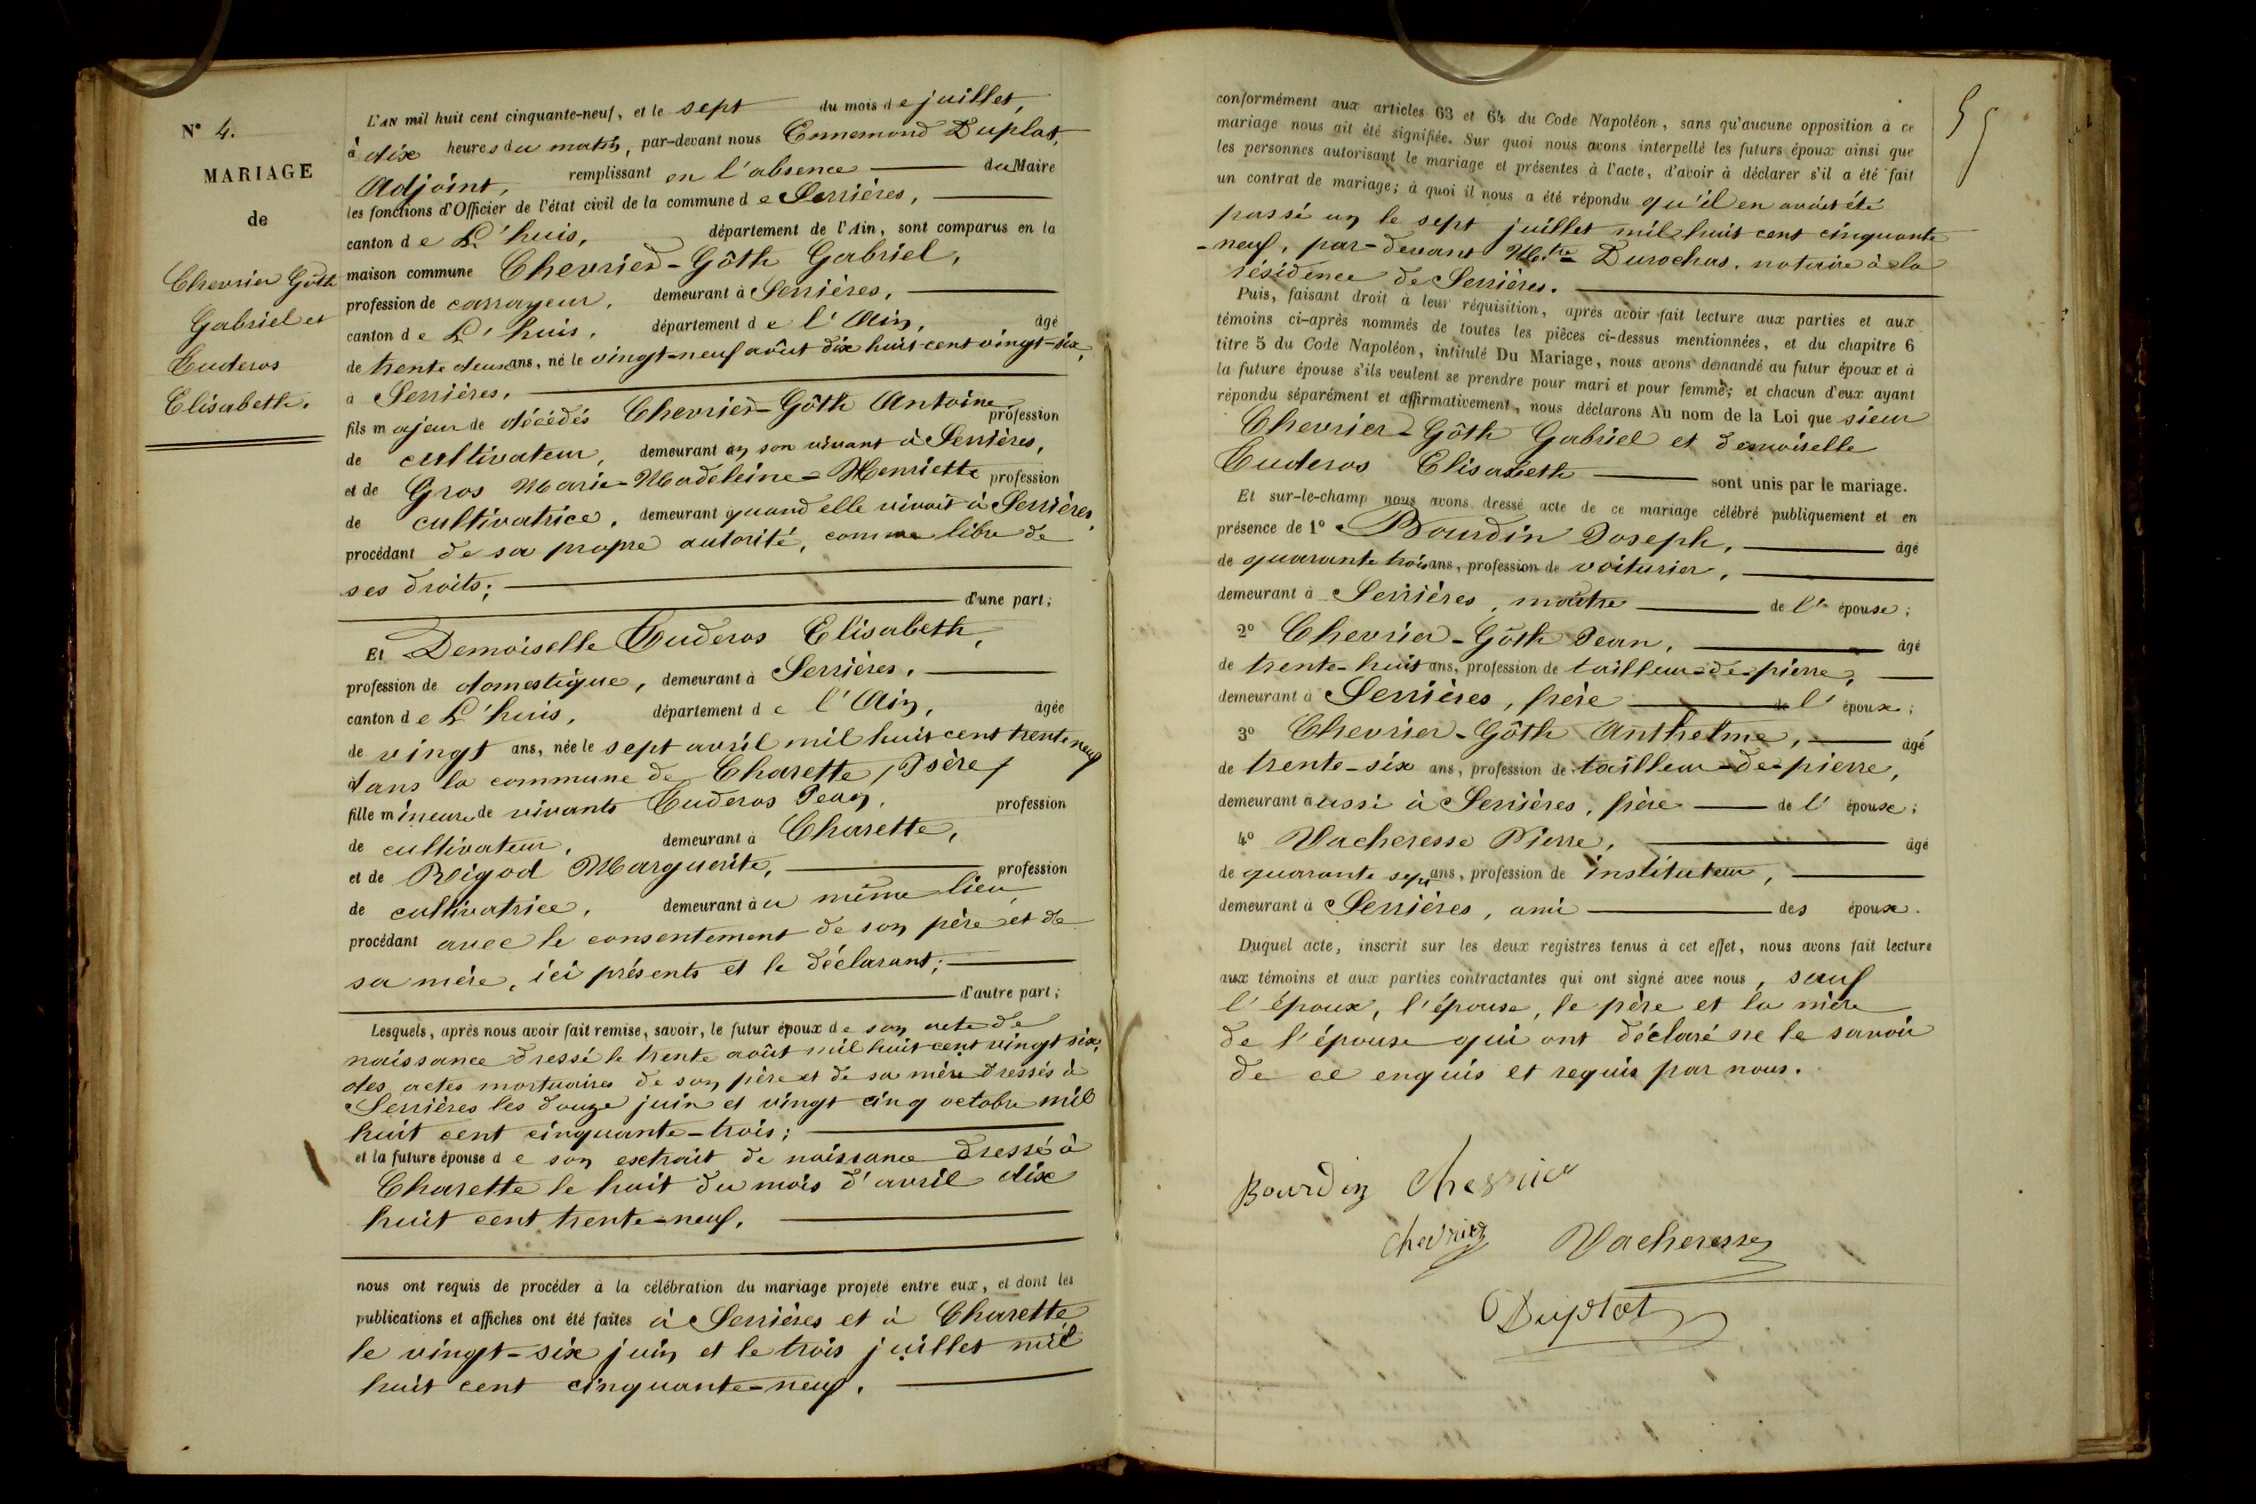 N° 4.
MARIAGE
de
Chevrier Gôth
Gabriel et
Cuderos
Elisabeth.
L'AN mil huit cent cinquante-neuf, et le sept du mois de juillet,
à dix heures du matin, par-devant nous Ennemond Duplat,
Adjoint, remplissant en l'absence du Maire
les fonctions d'Officier de l'état civil de la commune de Serrières,
canton de L'huis, département de l'Ain, sont comparus en la
maison commune Chevrier-Gôth Gabriel,
profession de carrayeur, demeurant à Serrières,
canton de L'huis, département de l'Ain, âgé
de trente deux ans, né le vingt-neuf août dix huit cent vingt-six,
à Serrières,
fils majeur de décédés Chevrier-Gôth Antoine profession
de cultivateur, demeurant en son vivant à Serrières,
et de Gros Marie-Madeleine-Henriette profession
de cultivatrice, demeurant quand elle vivait à Serrières,
procédant de sa propre autorité, comme libre de
ses droits;
d'une part;
Et Demoiselle Cuderos Elisabeth,
profession de domestique, demeurant à Serrières,
canton de L'huis, département de l'Ain, âgée
de vingt ans, née le sept avril mil huit cent trente neuf
dans la commune de Charette (Isère)
fille mineure de vivants Cuderos Jean, profession
de cultivateur, demeurant à Charette,
et de Rigod Marguerite, profession
de cultivatrice, demeurant au même lieu
procédant avec le consentement de son père et de
sa mère, ici présents et le déclarant;
d'autre part;
Lesquels, après nous avoir fait remise, savoir, le futur époux de son acte de
naissance dressé le trente août mil huit cent vingt six,
des actes mortuaires de son père et de sa mère dressés à
Serrières les douze juin et vingt cinq octobre mil
huit cent cinquante-trois;
et la future épouse de son extrait de naissance dressé à
Charette le huit du mois d'avril dix
huit cent trente-neuf.
nous ont requis de procéder à la célébration du mariage projeté entre eux, et dont les
publications et affiches ont été faites à Serrières et à Charette
le vingt-six juin et le trois juillet mil
huit cent cinquante-neuf.
55
conformément aux articles 63 et 64 du Code Napoléon, sans qu'aucune opposition à ce
mariage nous ait été signifiée. Sur quoi nous avons interpellé les futurs époux ainsi que
les personnes autorisant le mariage et présentes à l'acte, d'avoir à déclarer s'il a été fait
un contrat de mariage; à quoi il nous a été répondu qu'il en avait été
passé un le sept juillet mil huit cent cinquante
-neuf, par-devant Mtre Durochas, notaire à la
résidence de Serrières.
Puis, faisant droit à leur réquisition, après avoir fait lecture aux parties et aux
témoins ci-après nommés de toutes les pièces ci-dessus mentionnées, et du chapitre 6
titre 5 du Code Napoléon, intitulé Du Mariage, nous avons demandé au futur époux et à
la future épouse s'ils veulent se prendre pour mari et pour femme; et chacun d'eux ayant
répondu séparément et affirmativement, nous déclarons Au nom de la Loi que sieur
Chevrier-Gôth Gabriel et demoiselle
Cuderos Elisabeth sont unis par le mariage.
Et sur-le-champ nous avons dressé acte de ce mariage célébré publiquement et en
présence de 1° Bourdin Joseph, âgé
de quarante trois ans, profession de voiturier,
demeurant à Serrières, maître de l'épouse;
2° Chevrier-Gôth Jean, âgé
de trente-huit ans, profession de tailleur-de-pierre,
demeurant à Serrières, frère de l'époux;
3° Chevrier-Gôth Anthelme, âgé
de trente-six ans, profession de tailleur-de-pierre,
demeurant aussi à Serrières, frère de l'époux;
4° Vacheresse Pierre, âgé
de quarante sept ans, profession de instituteur,
demeurant à Serrières, ami des époux.
Duquel acte, inscrit sur les deux registres tenus à cet effet, nous avons fait lecture
aux témoins et aux parties contractantes qui ont signé avec nous, sauf
l'époux, l'épouse, le père et la mère
de l'épouse qui ont déclaré ne le savoir
de ce enquis et requis par nous.
Bourdin Chevrier
Chevrier Vacheresse
Duplat